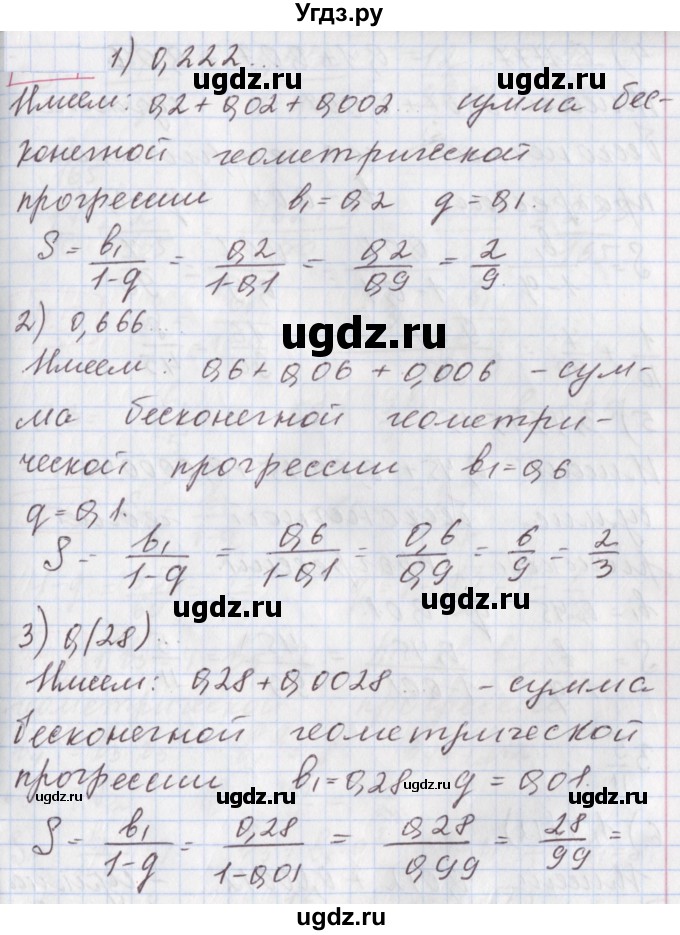 Угдз.ру
1) 0,222...
Имеем: 0,2 + 0,02 + 0,002... сумма бес-
конечной геометрической
прогрессии b₁ = 0,2 q = 0,1.
S = b₁/(1-q) = 0,2/(1-0,1) = 0,2/0,9 = 2/9.
2) 0,666...
Имеем: 0,6 + 0,06 + 0,006 - сум-
ма бесконечной геометри-
ческой прогрессии b₁ = 0,6
q = 0,1.
S = b₁/(1-q) = 0,6/(1-0,1) = 0,6/0,9 = 6/9 = 2/3
3) 0,(28)...
Имеем: 0,28 + 0,0028 ... - сумма
бесконечной геометрической
прогрессии b₁ = 0,28 q = 0,01.
S = b₁/(1-q) = 0,28/(1-0,01) = 0,28/0,99 = 28/99 =
ugdz.ru